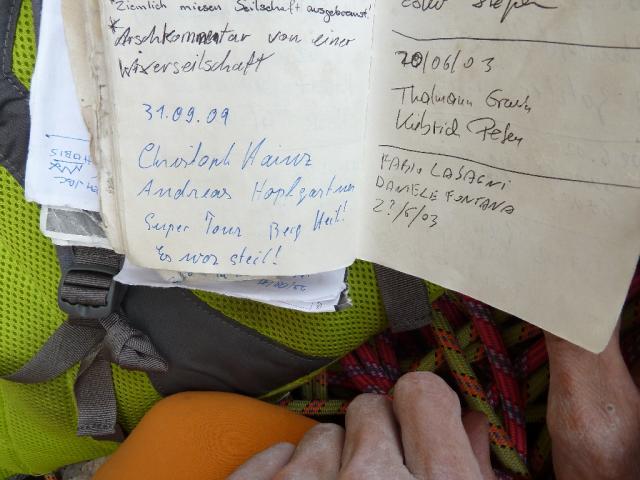 *Ziemlich miesen Seilschaft ausgebremst!
*Arschkommentar von einer
Wixerseilschaft
31.09.09
Christoph Hainz
Andreas
Super Tour Berg Heil!
Es war steil!
20/06/03
Thalmann
Peter
FABIO LASAGNI
DANIELE FONTANA
2?/6/03